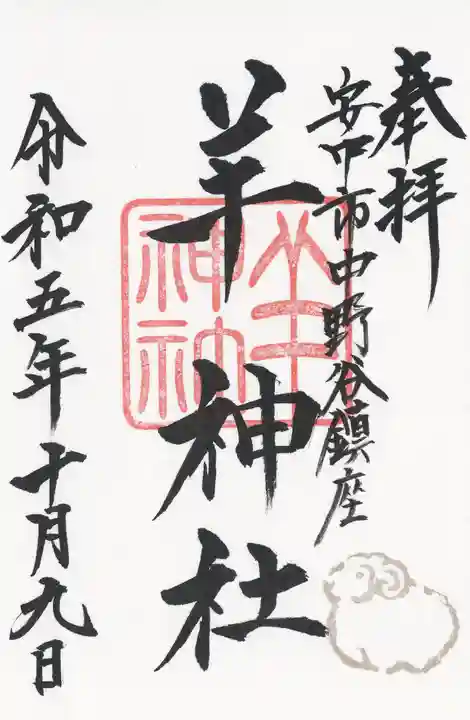 奉拝
安中市中野谷鎮座
羊神社
羊神社
令和五年十月九日